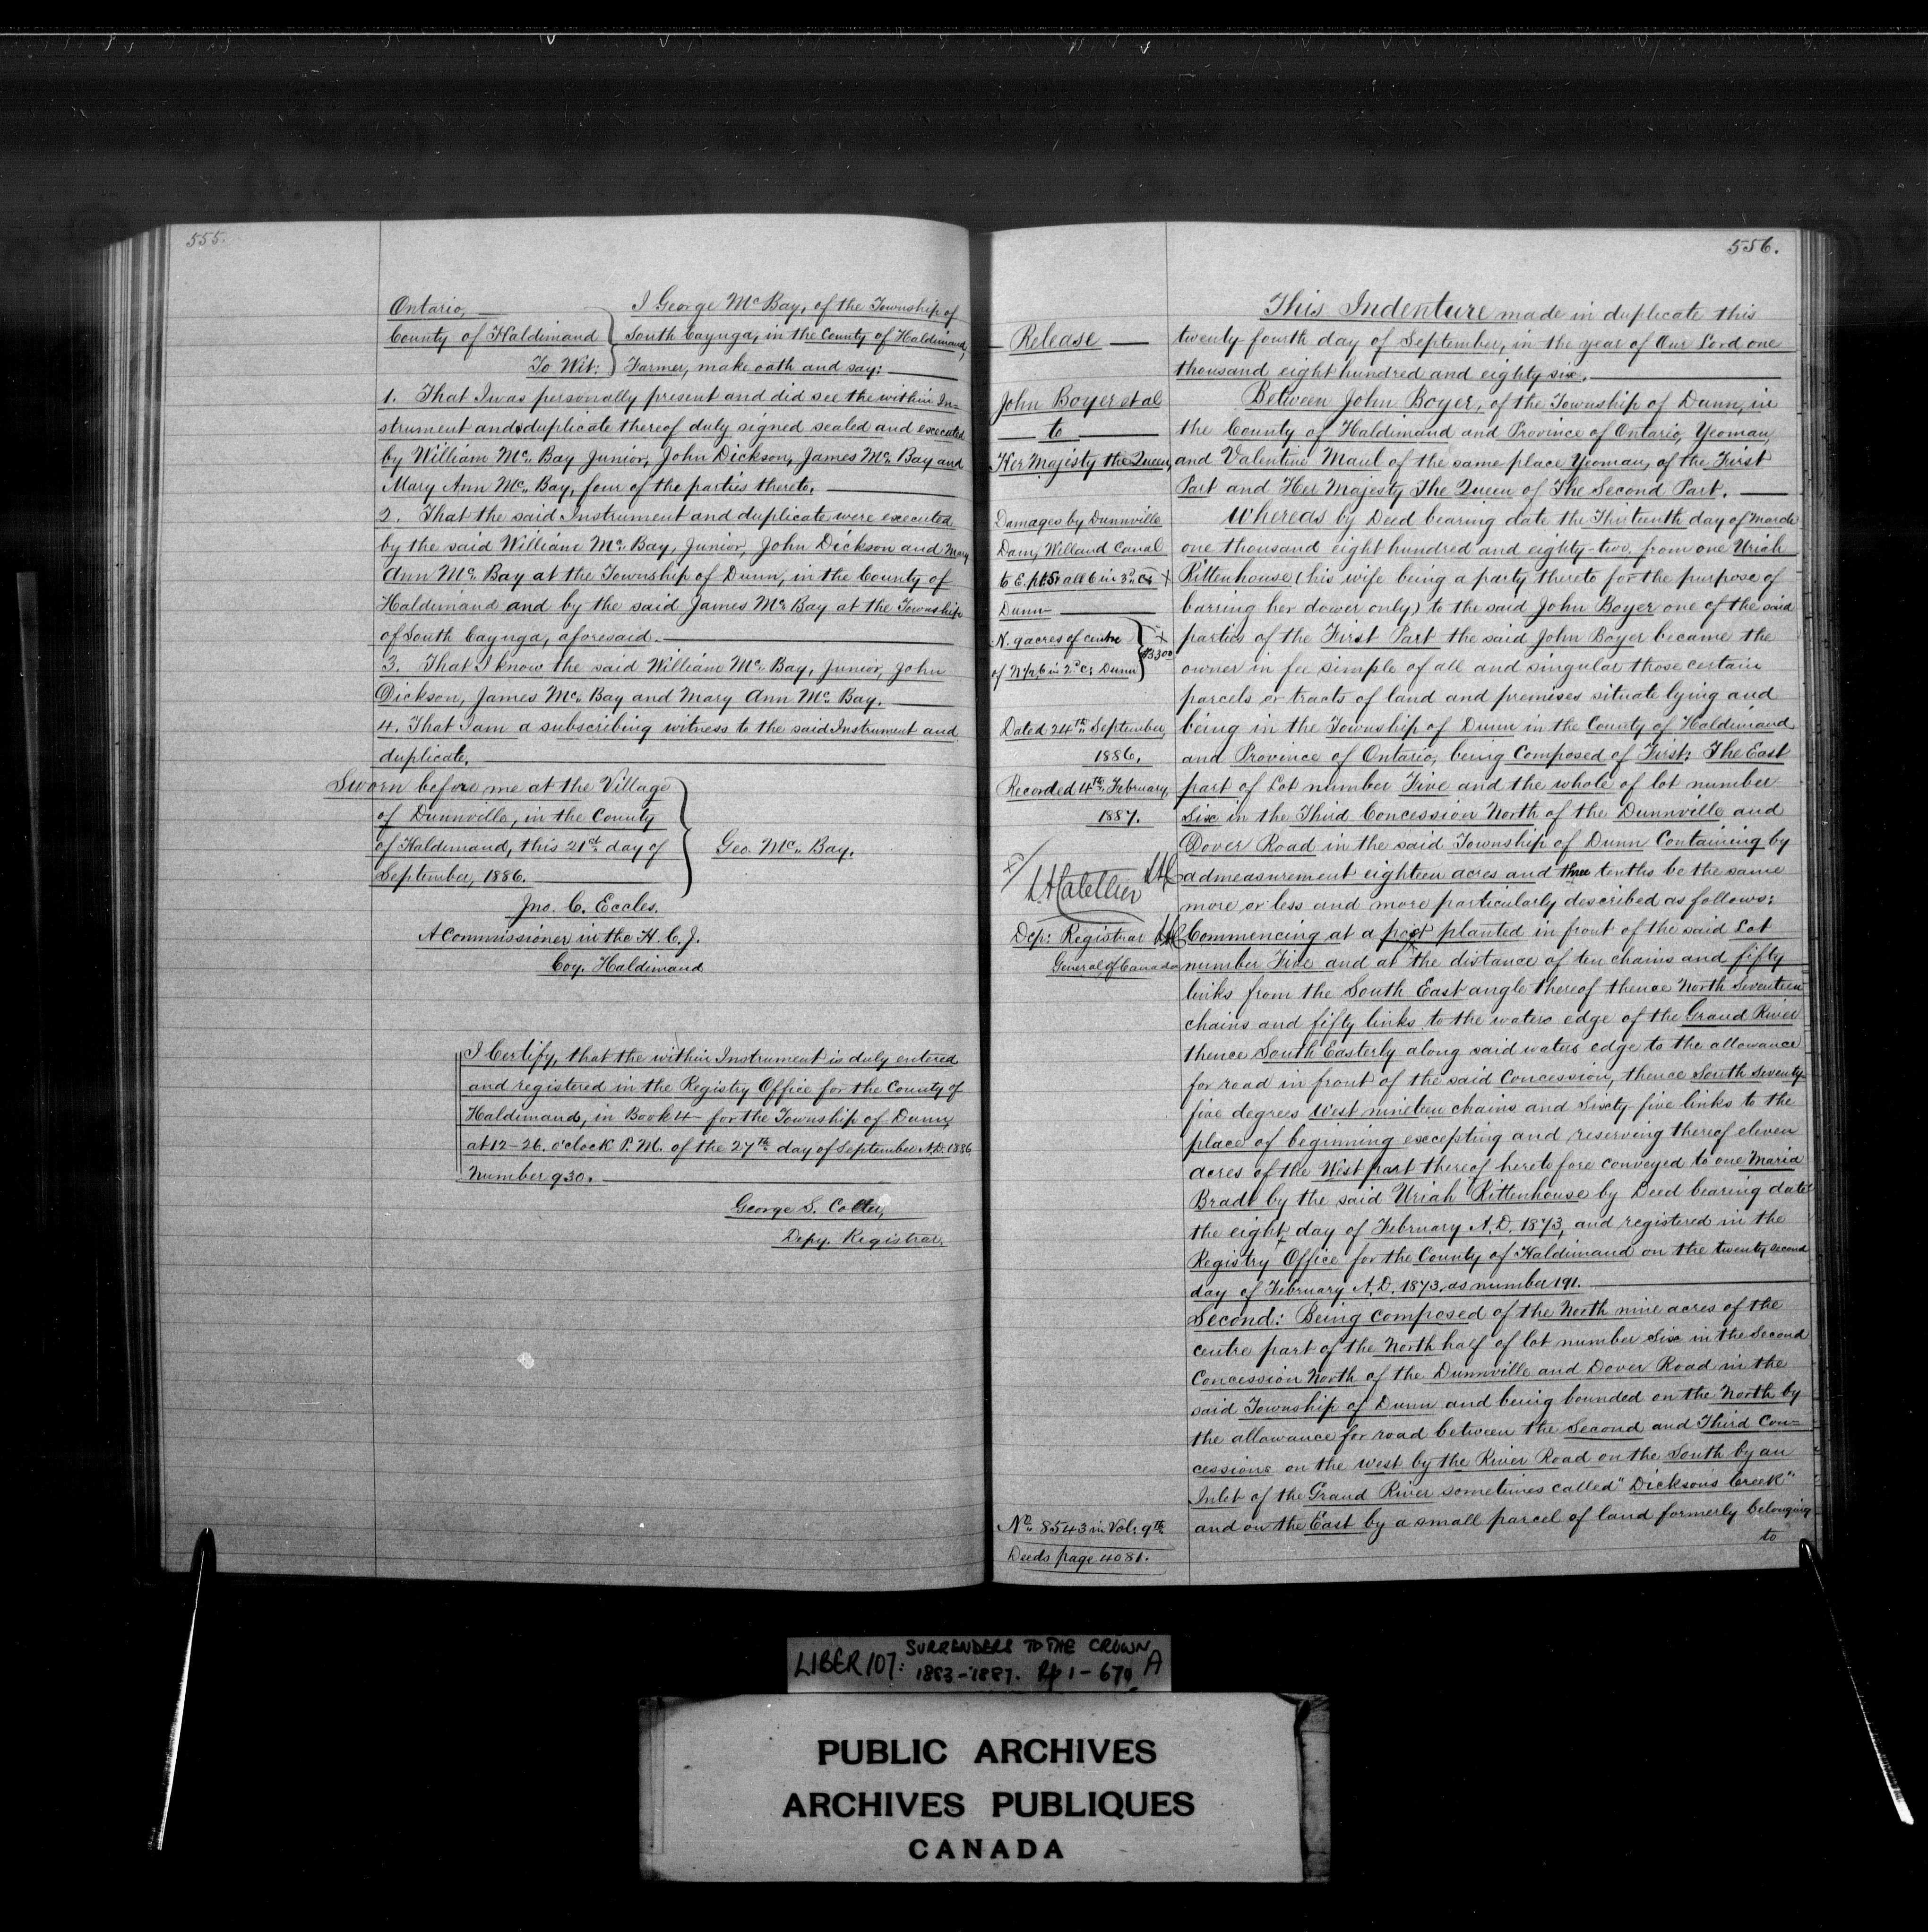 555.
Ontario,
County of Haldimand
To Wit:
I George Mc Bay, of the Township of
South Cayuga, in the County of Haldimand,
Farmer, make oath and say:
1. That I was personally present and did see the within In-
strument and duplicate thereof duly signed sealed and executed
by William Mc. Bay Junior, John Dickson, James Mc. Bay and
Mary Ann Mc. Bay, four of the parties thereto.
2. That the said Instrument and duplicate were executed
by the said William Mc. Bay, Junior, John Dickson and Mary
Ann Mc. Bay at the Township of Dunn, in the County of
Haldimand and by the said James Mc. Bay at the Township
of South Cayuga, aforesaid.
3. That I know the said William Mc. Bay, Junior, John
Dickson, James Mc. Bay and Mary Ann Mc. Bay.
4. That I am a subscribing witness to the said Instrument and
duplicate.
Sworn before me at the Village
of Dunnville, in the County
of Haldimand, this 21st day of
September, 1886.
Geo. Mc. Bay.
Jno. C. Eccles.
A Commissioner in the H. C. J.
Coy. Haldimand
I Certify, that the within Instrument is duly entered
and registered in the Registry Office for the County of
Haldimand, in Book 4 for the Township of Dunn,
at 12-26. o'clock P.M. of the 27th day of September A.D. 1886
Number 930.
George S. Cotter,
Depy. Registrar.
556.
Release
John Boyer et al
to
Her Majesty the Queen,
Damages by Dunnville
Dam, Welland Canal
to E. pt 5 & all 6 in 3d. C. X
Dunn
N. 9 acres of centre
of N 1/2 6 in 2d C. Dunn
X
$3300
Dated 24th September
1886.
Recorded 4th February
1887.
Dep: Registrar
General of Canada
No. 8543 in Vol: 9th
Deeds page 4081.
This Indenture made in duplicate this
twenty fourth day of September, in the year of Our Lord one
thousand eight hundred and eighty six.
Between John Boyer, of the Township of Dunn, in
the County of Haldimand and Province of Ontario, Yeoman,
and Valentine Maul of the same place Yeoman, of the First
Part and Her Majesty The Queen of The Second Part.
Whereas by Deed bearing date the Thirteenth day of March
one thousand eight hundred and eighty-two, from one Uriah
Rittenhouse (his wife being a party thereto for the purpose of
barring her dower only) to the said John Boyer one of the said
parties of the First Part the said John Boyer became the
owner in fee simple of all and singular those certain
parcels or tracts of land and premises situate lying and
being in the Township of Dunn in the County of Haldimand
and Province of Ontario, being Composed of First: The East
part of Lot number Five and the whole of lot number
Six in the Third Concession North of the Dunnville and
Dover Road in the said Township of Dunn Containing by
admeasurement eighteen acres and three tenths be the same
more or less and more particularly described as follows:
Commencing at a post planted in front of the said Lot
number Five and at the distance of ten chains and fifty
links from the South East angle thereof thence North Seventeen
chains and fifty links to the waters edge of the Grand River
thence South Easterly along said waters edge to the allowance
for road in front of the said Concession, thence South Seventy
five degrees West nineteen chains and Sixty five links to the
place of beginning excepting and reserving thereof eleven
acres of the West part thereof heretofore conveyed to one Maria
Bradt by the said Uriah Rittenhouse by Deed bearing date
the eight day of February A.D. 1873, and registered in the
Registry Office for the County of Haldimand on the twenty second
day of February A.D. 1873, as number 191.
Second: Being composed of the North nine acres of the
centre part of the North half of lot number Six in the Second
Concession North of the Dunnville and Dover Road in the
said Township of Dunn and being bounded on the North by
the allowance for road between the Second and Third Con-
cessions on the west by the River Road on the South by an
Inlet of the Grand River sometimes called "Dickson's Creek"
and on the East by a small parcel of land formerly belonging
to
LIBER 107: SURRENDERS TO THE CROWN
1883-1887. Pp 1-670 A
PUBLIC ARCHIVES
ARCHIVES PUBLIQUES
CANADA